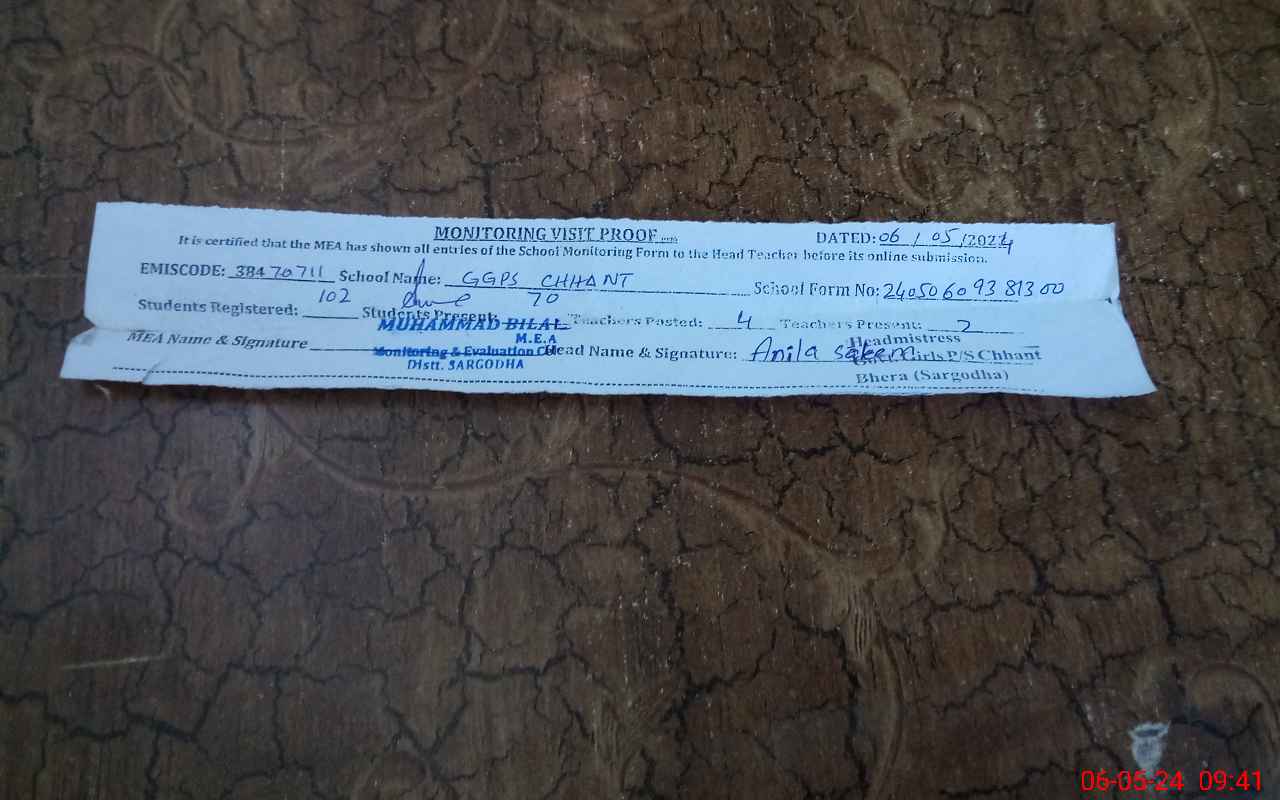 MONITORING VISIT PROOF DATED: 06 / 05 / 2024
It is certified that the MEA has shown all entries of the School Monitoring Form to the Head Teacher before its online submission.
EMISCODE: 38470711 School Name: GGPS CHHANT School Form No: 24050609381300
Students Registered: 102 Students Present: 70 Teachers Posted: 4 Teachers Present: 2
MUHAMMAD BILAL
M.E.A
MEA Name & Signature Head Name & Signature: Anila
Monitoring & Evaluation
Distt. SARGODHA
Headmistress
Girls P/S Chhant
Bhera (Sargodha)
06-05-24 09:41